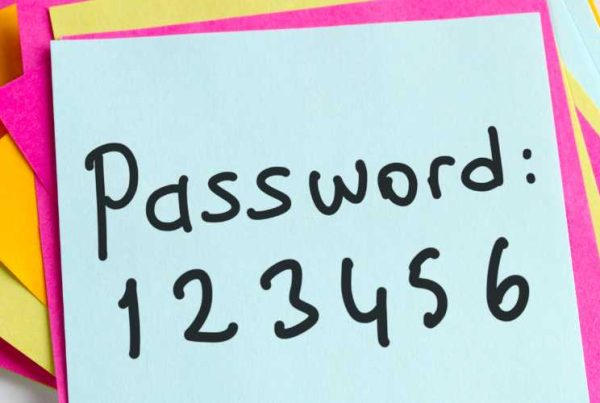 Password:
123456